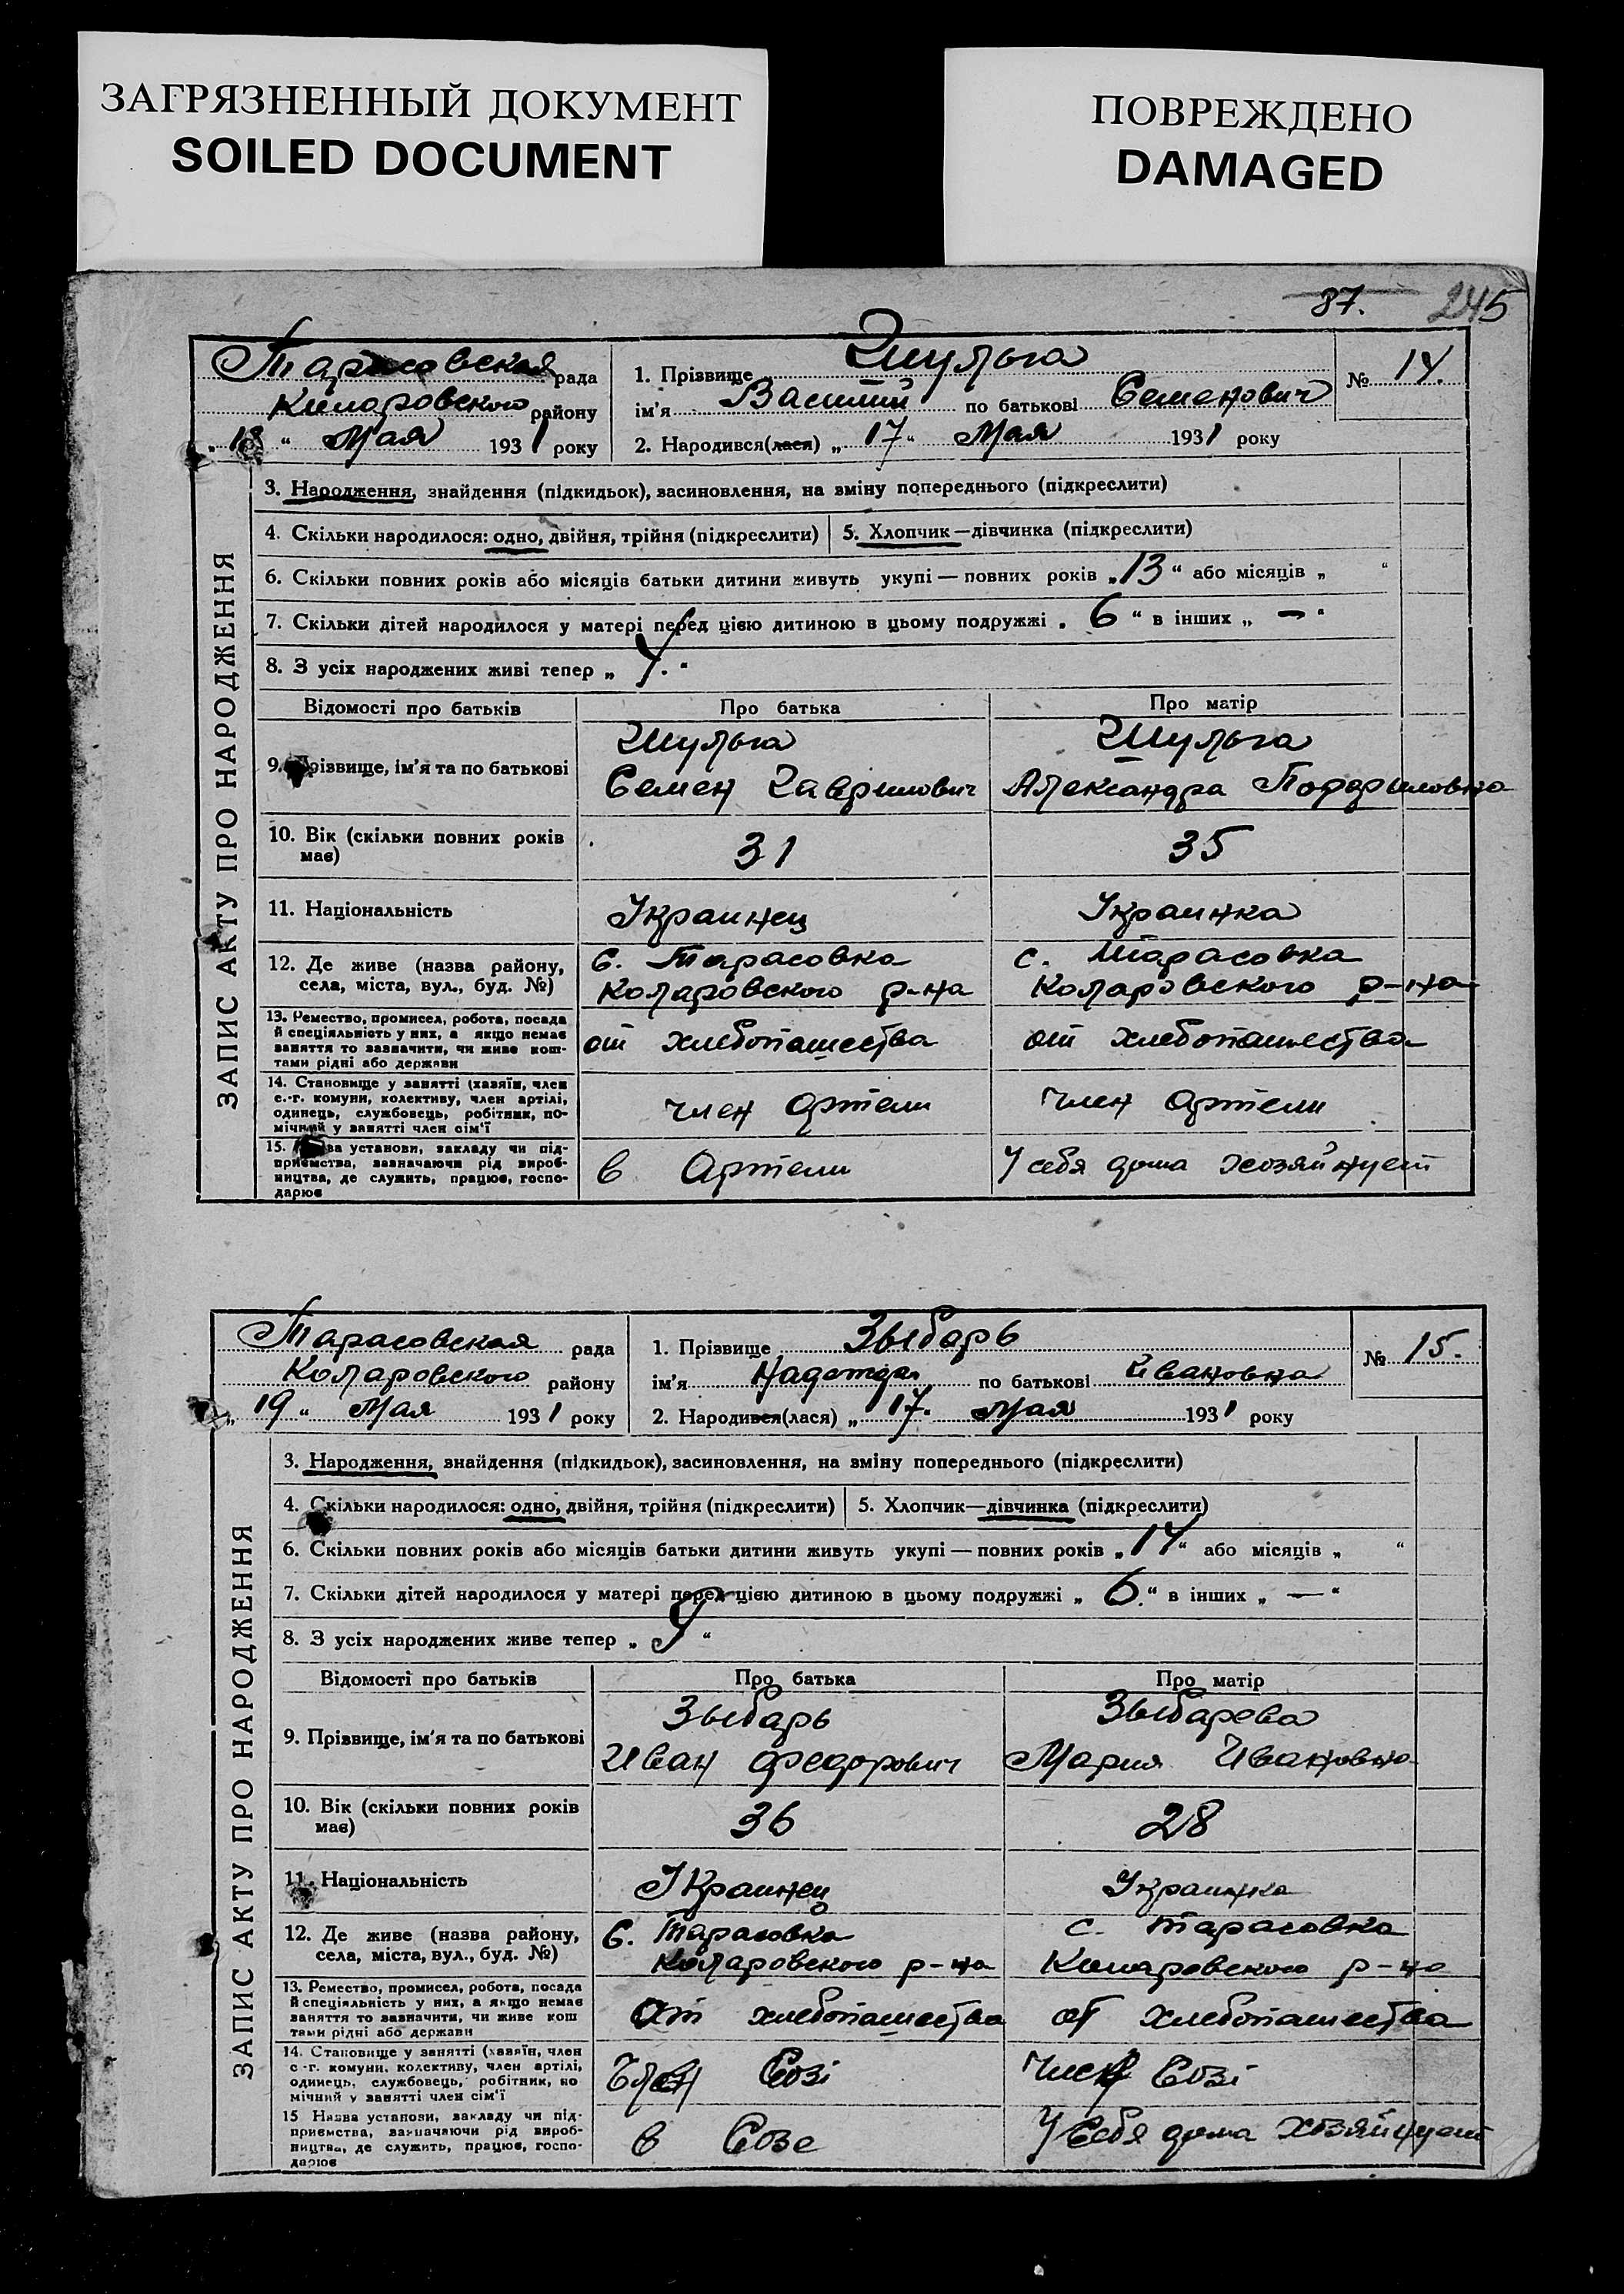 ЗАГРЯЗНЕННЫЙ ДОКУМЕНТ
SOILED DOCUMENT
ПОВРЕЖДЕНО
DAMAGED
87. 245
Тарасовская рада
Коларовского району
„18“ Мая 1931 року
1. Прізвище Шульга
ім'я Василий по батькові Семенович
2. Народився(лася) „17“ Мая 1931 року
№ 14.
ЗАПИС АКТУ ПРО НАРОДЖЕННЯ
3. Народження, знайдення (підкидьок), засиновлення, на зміну попереднього (підкреслити)
4. Скільки народилося: одно, двійня, трійня (підкреслити) 5. Хлопчик—дівчинка (підкреслити)
6. Скільки повних років або місяців батьки дитини живуть укупі — повних років „13“ або місяців „ “
7. Скільки дітей народилося у матері перед цією дитиною в цьому подружжі „6“ в інших „—“
8. З усіх народжених живі тепер „4.“
Відомості про батьків Про батька Про матір
9. Прізвище, ім'я та по батькові
Шульга
Семен Гаврилович
Шульга
Александра
10. Вік (скільки повних років
має)
31
35
11. Національність
Украинец
Украинка
12. Де живе (назва району,
села, міста, вул., буд. №)
С. Тарасовка
Коларовского р-на
с. Тарасовка
Коларовского р-на
13. Ремество, промисел, робота, посада
й спеціяльність у них, а якщо немає
заняття то зазначити, чи живе кош-
тами рідні або держави
от хлебопашества
от хлебопашества
14. Становище у занятті (хазяїн, член
с.-г. комуни, колективу, член артілі,
одинець, службовець, робітник, по-
мічний у занятті член сім'ї
член артели
член артели
15. Назва установи, закладу чи під-
приємства, зазначаючи рід вироб-
ництва, де служить, працює, госпо-
дарює
в Артели
У себя дома хозяйнует
Тарасовская рада
Коларовского району
„19“ Мая 1931 року
1. Прізвище Зыбарь
ім'я Надежда по батькові Ивановна
2. Народився(лася) „17. Мая 1931 року
№ 15.
ЗАПИС АКТУ ПРО НАРОДЖЕННЯ
3. Народження, знайдення (підкидьок), засиновлення, на зміну попереднього (підкреслити)
4. Скільки народилося: одно, двійня, трійня (підкреслити) 5. Хлопчик—дівчинка (підкреслити)
6. Скільки повних років або місяців батьки дитини живуть укупі — повних років „14“ або місяців „ “
7. Скільки дітей народилося у матері перед цією дитиною в цьому подружжі „6.“ в інших „—“
8. З усіх народжених живе тепер „ “
Відомості про батьків Про батька Про матір
9. Прізвище, ім'я та по батькові
Зыбарь
Иван Федорович
Зыбарева
Мария Ивановна
10. Вік (скільки повних років
має)
36
28
11. Національність
Украинец
Украинка
12. Де живе (назва району,
села, міста, вул., буд. №)
С. Тарасовка
Коларовского р-на
с. Тарасовка
Коларовского р-на
13. Ремество, промисел, робота, посада
й спеціяльність у них, а якщо немає
заняття то зазначити, чи живе кош
тами рідні або держави
от хлебопашества
от хлебопашества
14. Становище у занятті (хазяїн, член
с-г. комуни, колективу, член артілі,
одинець, службовець, робітник, по
мічний у занятті член сім'ї
Член Созі
Член Созі
15 Назва установи, закладу чи під-
приємства, зазначаючи рід вироб-
ництва, де служить, працює, госпо-
дарює
в Созе
У себя дома хозяйнует